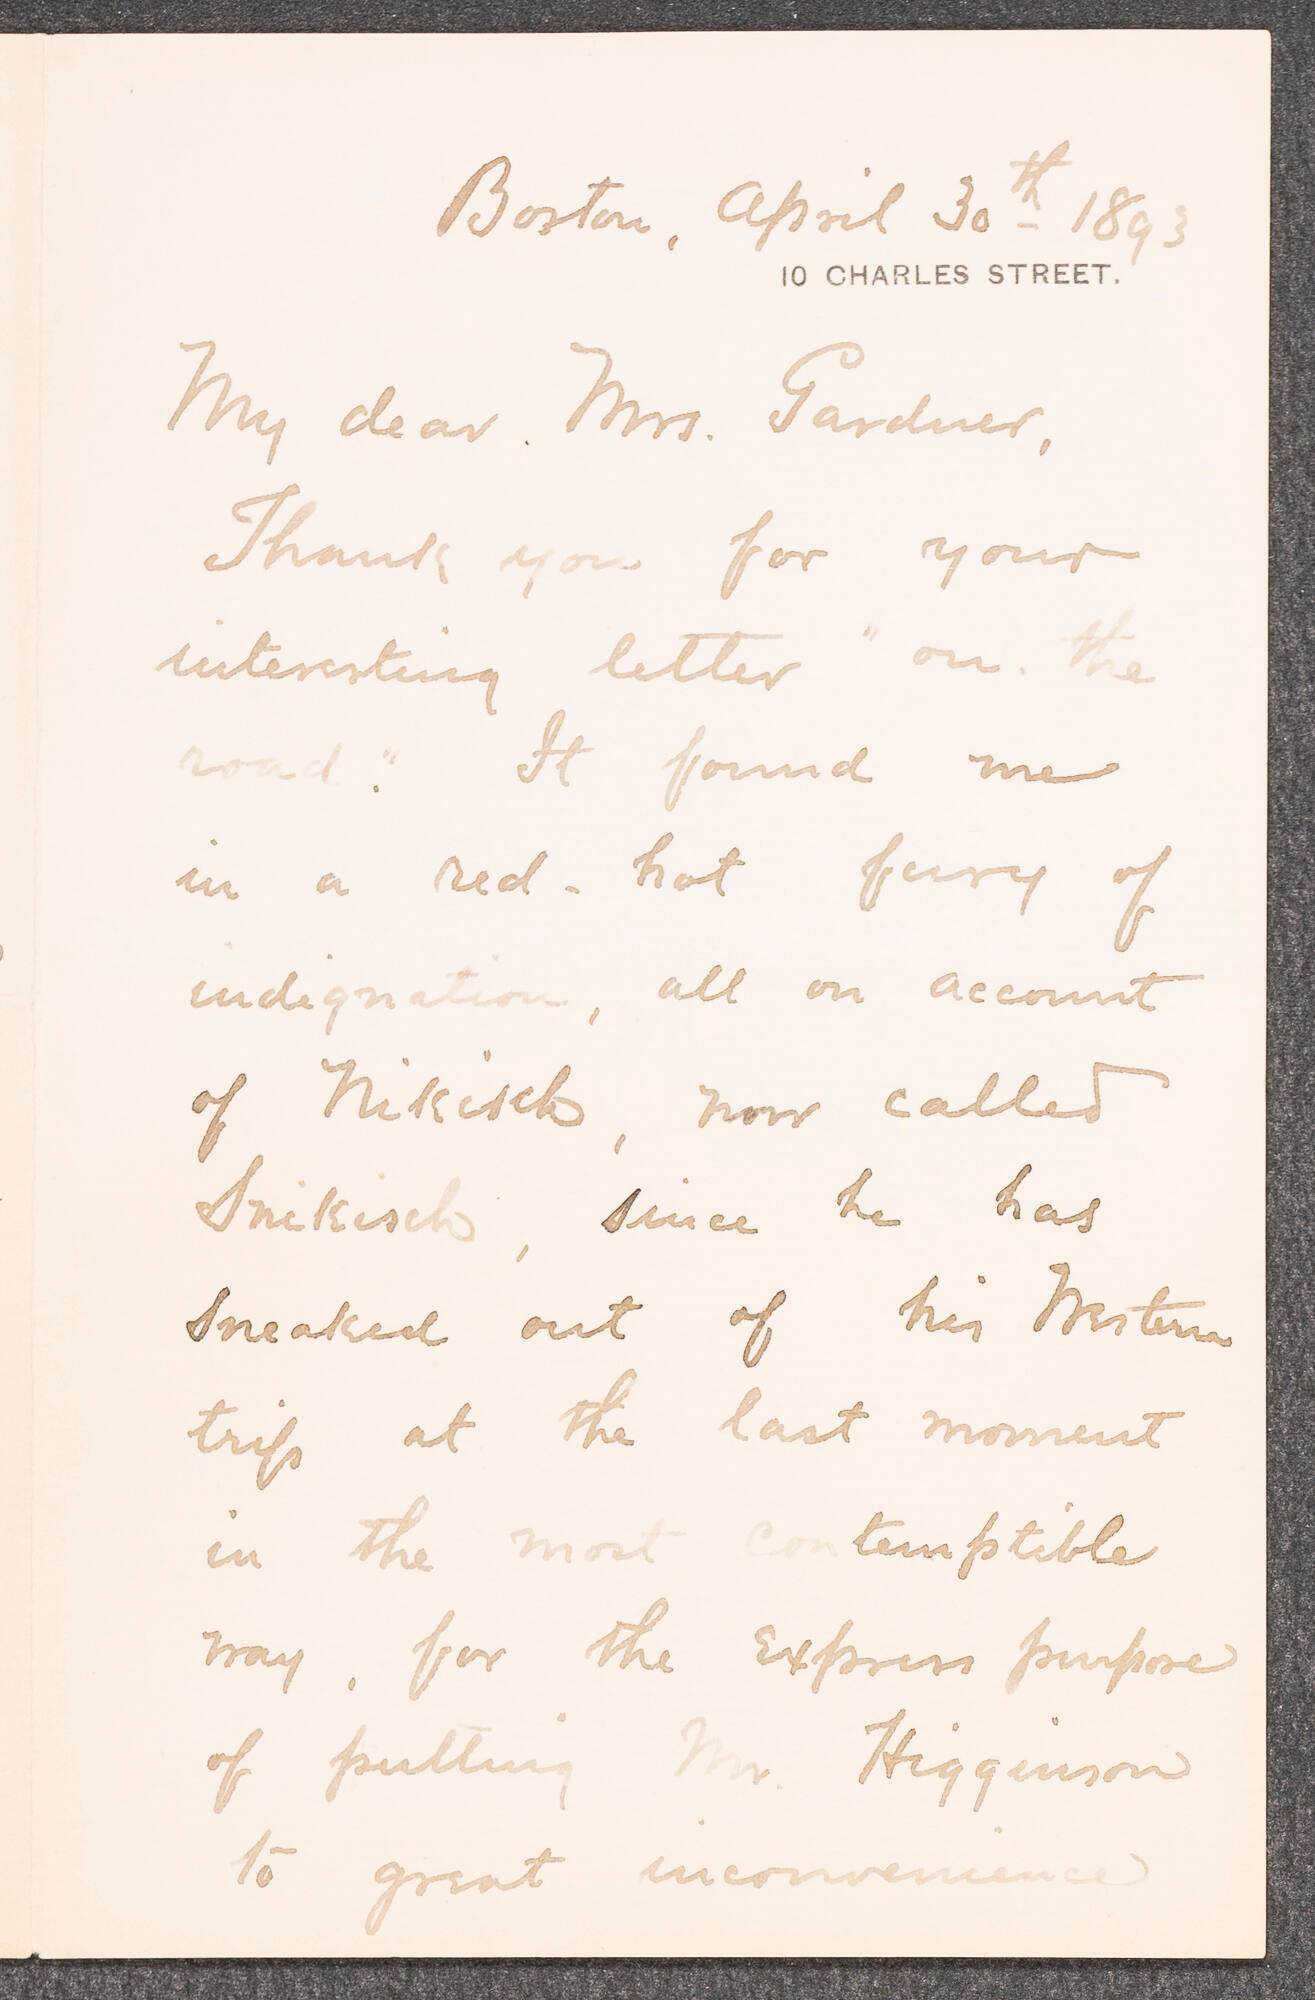 Boston, April 30th 1893
10 CHARLES STREET.
My dear Mrs. Gardner,
Thank you for your
interesting letter "on the
road." It found me
in a red-hot fury of
indignation, all on account
of Nikisch, now called
Snikisch, since he has
sneaked out of his Western
trip at the last moment
in the most contemptible
way, for the express purpose
of putting Mr. Higginson
to great inconvenience